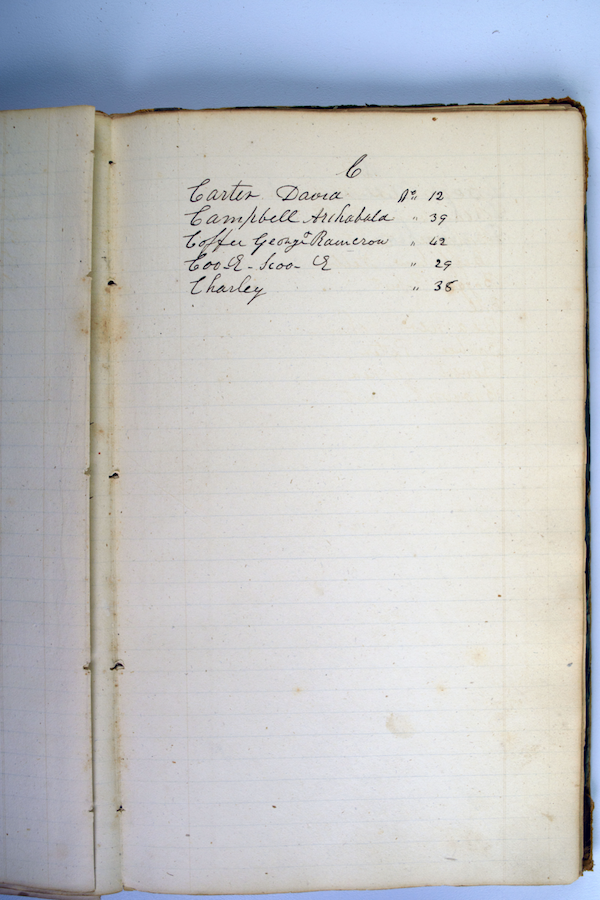 C
Carter David No 12
Campbell Archabald " 39
Coffee George Raincrow " 42
Coo-E-Scoo-E " 29
Charley " 38